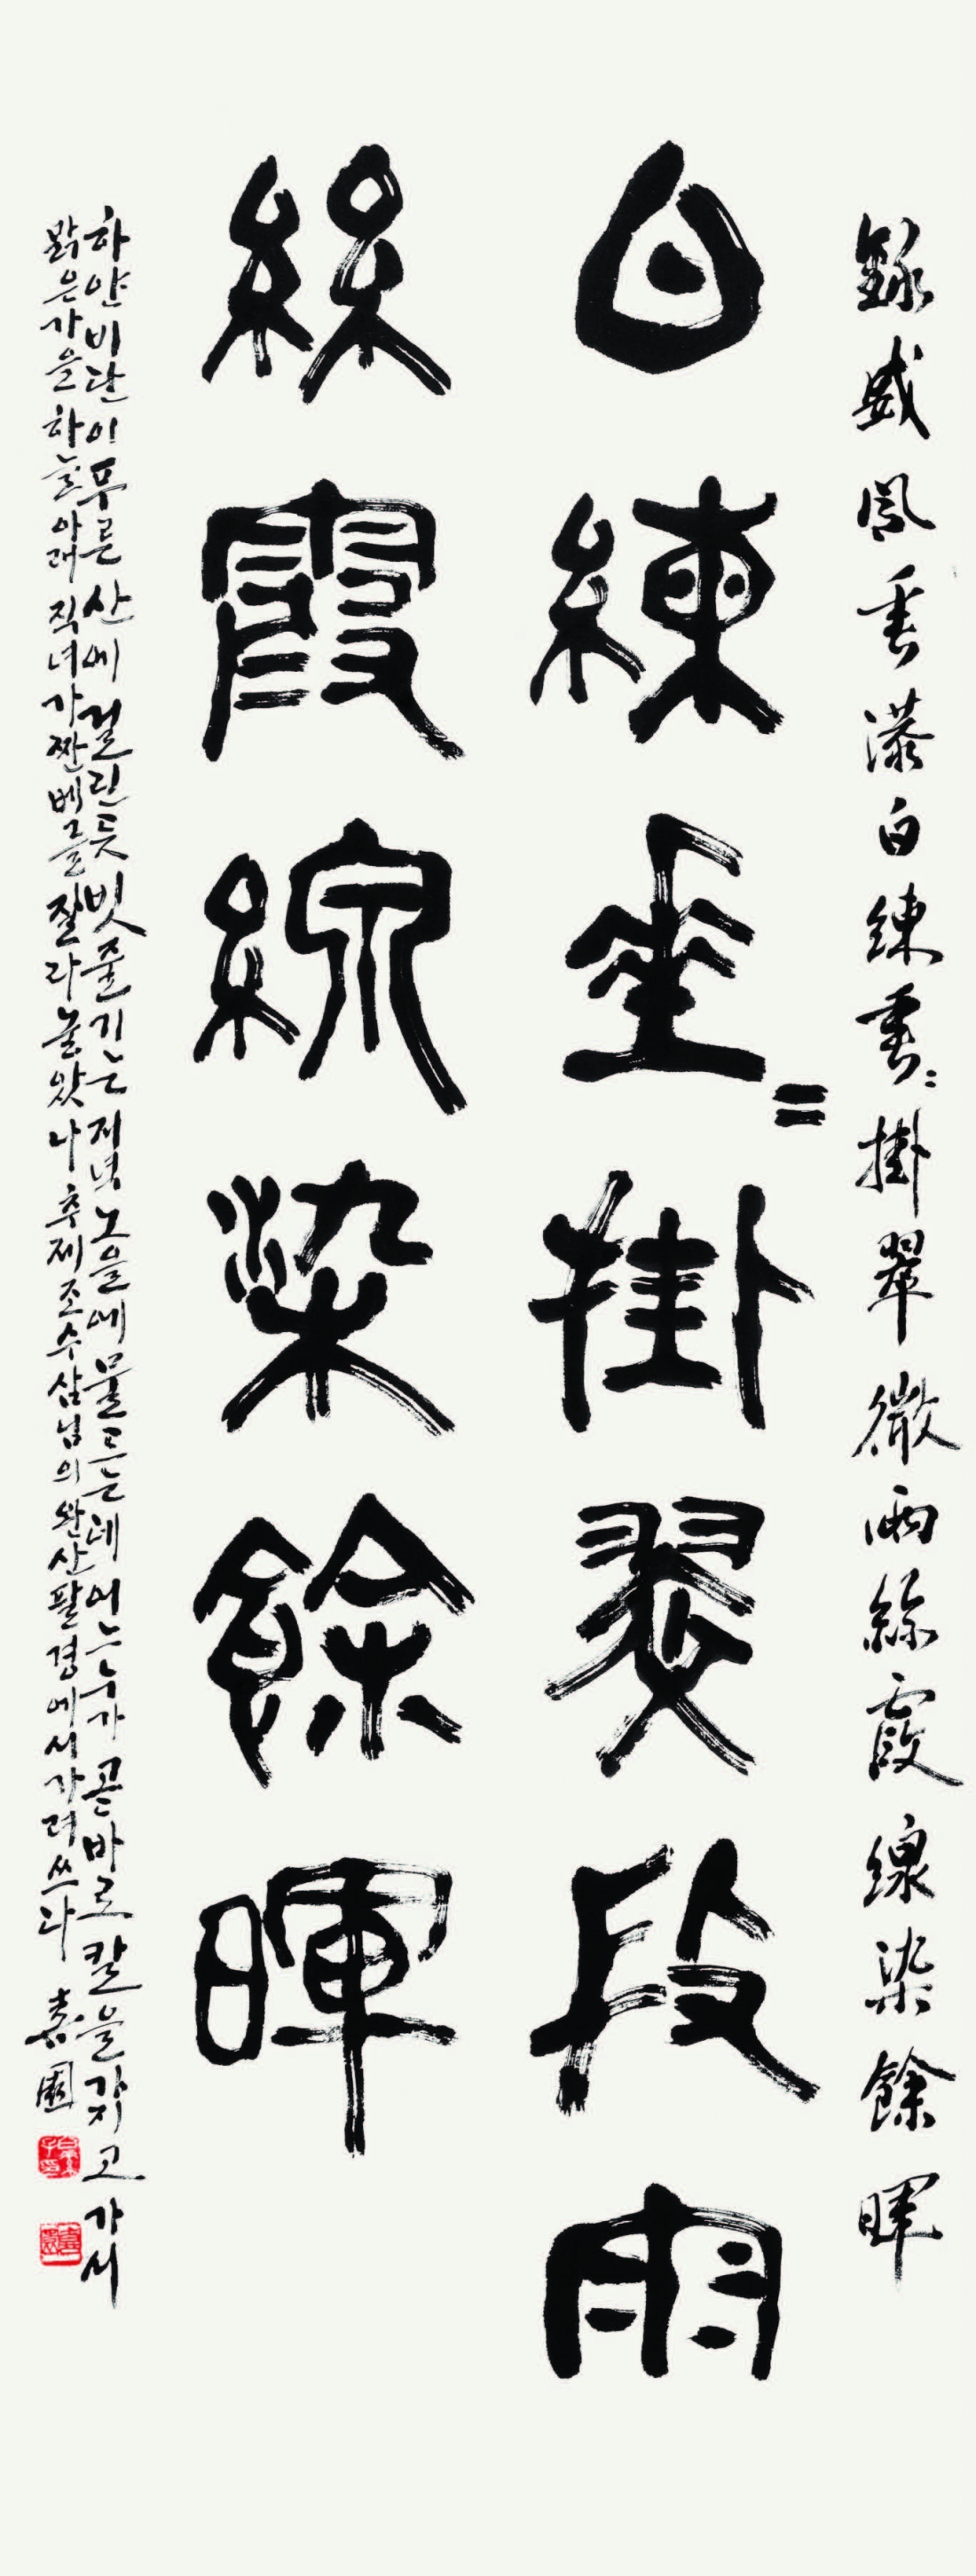 錄威鳳垂瀑白練垂〻掛翠微雨絲霞線染餘暉
白練垂〻掛翠微雨
絲霞線染餘暉
하얀 비단이 푸른 산에 걸린 듯 빗줄기는 저녁노을에 물드는데 어느 누가 곧바로 칼을 가지고 가서
맑은 가을 하늘 아래 직녀가 짠 베를 잘라 놓았나 추제 조수삼님의 완산팔경에서 가려 쓰다 園